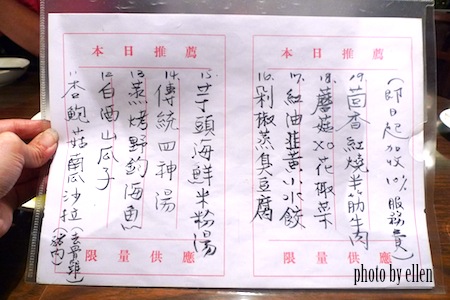 本日推薦
11. 杏鮑菇南瓜沙拉(去骨雞
豬肉)
12. 白酒山瓜子
13. 蒸烤野釣海魚
14. 傳統四神湯
15. 芋頭海鮮米粉湯
限量供應
本日推薦
16. 剁椒蒸臭豆腐
17. 紅油韭黃小水餃
18. 蘑菇XO花椰菜
19. 茴香紅燒半筋牛肉
(即日起加收10%服務費)
限量供應
photo by ellen